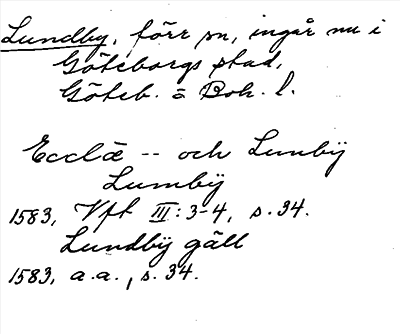 Lundby, förr sn, ingår nu i
Göteborgs stad,
Göteb. o Boh. l.
Ecclæ -- och Lunbÿ
Lumbÿ
1583, Vft III:3-4, s. 34.
Lundbÿ gäll
1583, a.a., s. 34.